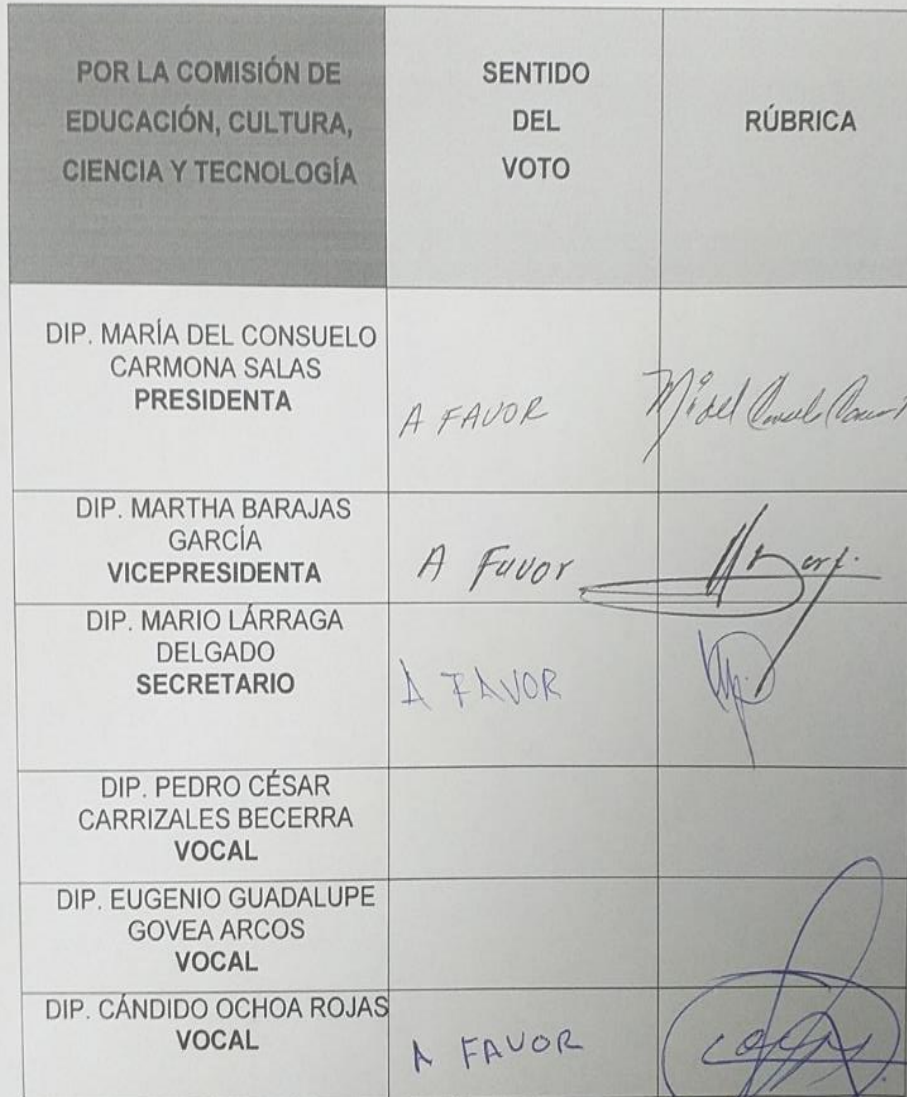 POR LA COMISIÓN DE
EDUCACIÓN, CULTURA,
CIENCIA Y TECNOLOGÍA
SENTIDO
DEL
VOTO
RÚBRICA
DIP. MARÍA DEL CONSUELO
CARMONA SALAS
PRESIDENTA
A FAVOR
DIP. MARTHA BARAJAS
GARCÍA
VICEPRESIDENTA
A Favor
DIP. MARIO LÁRRAGA
DELGADO
SECRETARIO
A FAVOR
DIP. PEDRO CÉSAR
CARRIZALES BECERRA
VOCAL
DIP. EUGENIO GUADALUPE
GOVEA ARCOS
VOCAL
DIP. CÁNDIDO OCHOA ROJAS
VOCAL
A FAVOR